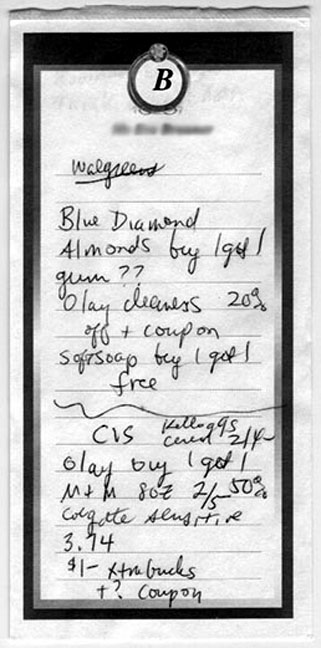 B
Walgreens
Blue Diamond
Almonds buy 1 get 1
gum ??
Olay cleansers 20%
off + coupon
softsoap buy 1 get 1
free
CVS Kelloggs
cereal 2/4-
Olay buy 1 get 1
M+M 8oz 2/5- 50%
Colgate sensitive
3.74
$1- xtrabucks
+? coupon